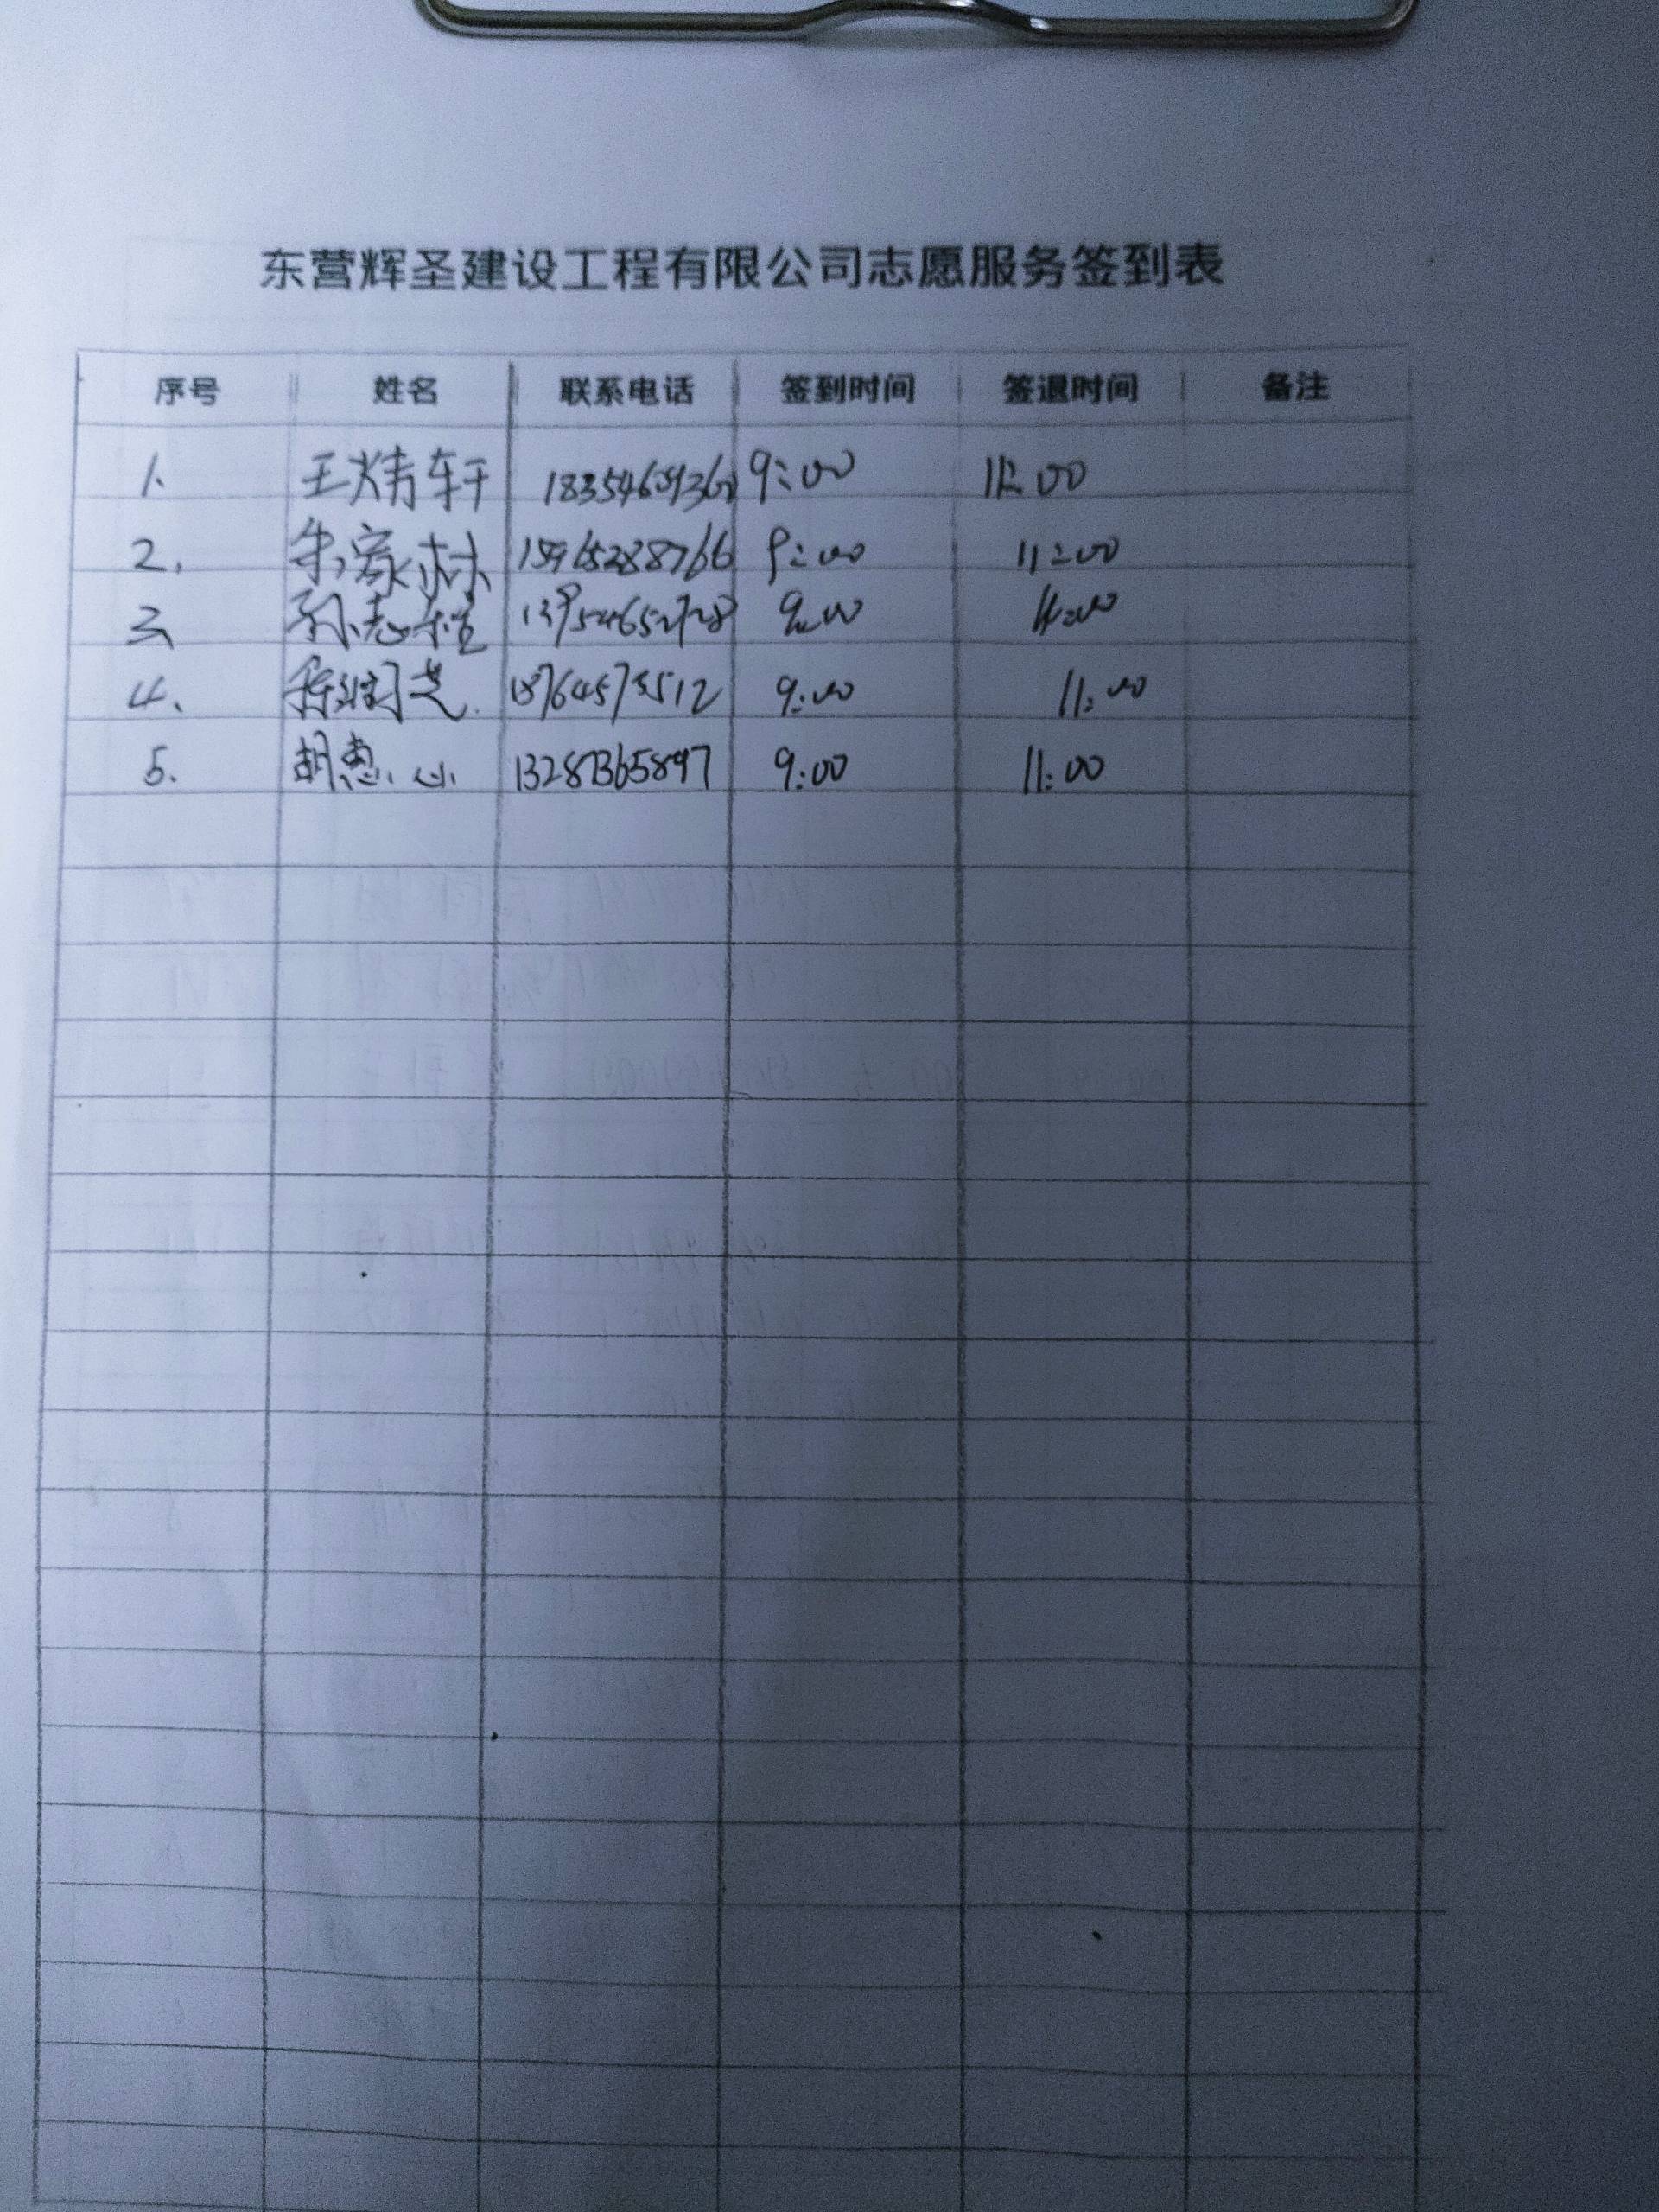 东营辉圣建设工程有限公司志愿服务签到表
序号 姓名 联系电话 签到时间 签退时间 备注
1. 王炜轩 9:00 11:00
2. 朱家林 15965288766 9:00 11:00
3 孙志桓 9:00 11:00
4. 18764573512 9:00 11:00
5. 胡惠心 13287365897 9:00 11:00